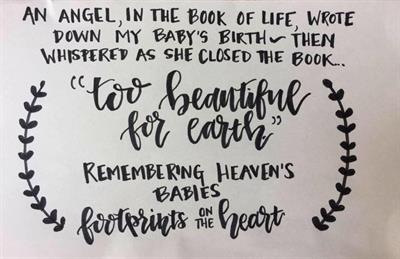 AN ANGEL, IN THE BOOK OF LIFE, WROTE
DOWN MY BABY'S BIRTH~THEN
WHISPERED AS SHE CLOSED THE BOOK...
"too beautiful
for earth"
REMEMBERING HEAVEN'S
BABIES
footprints ON THE heart